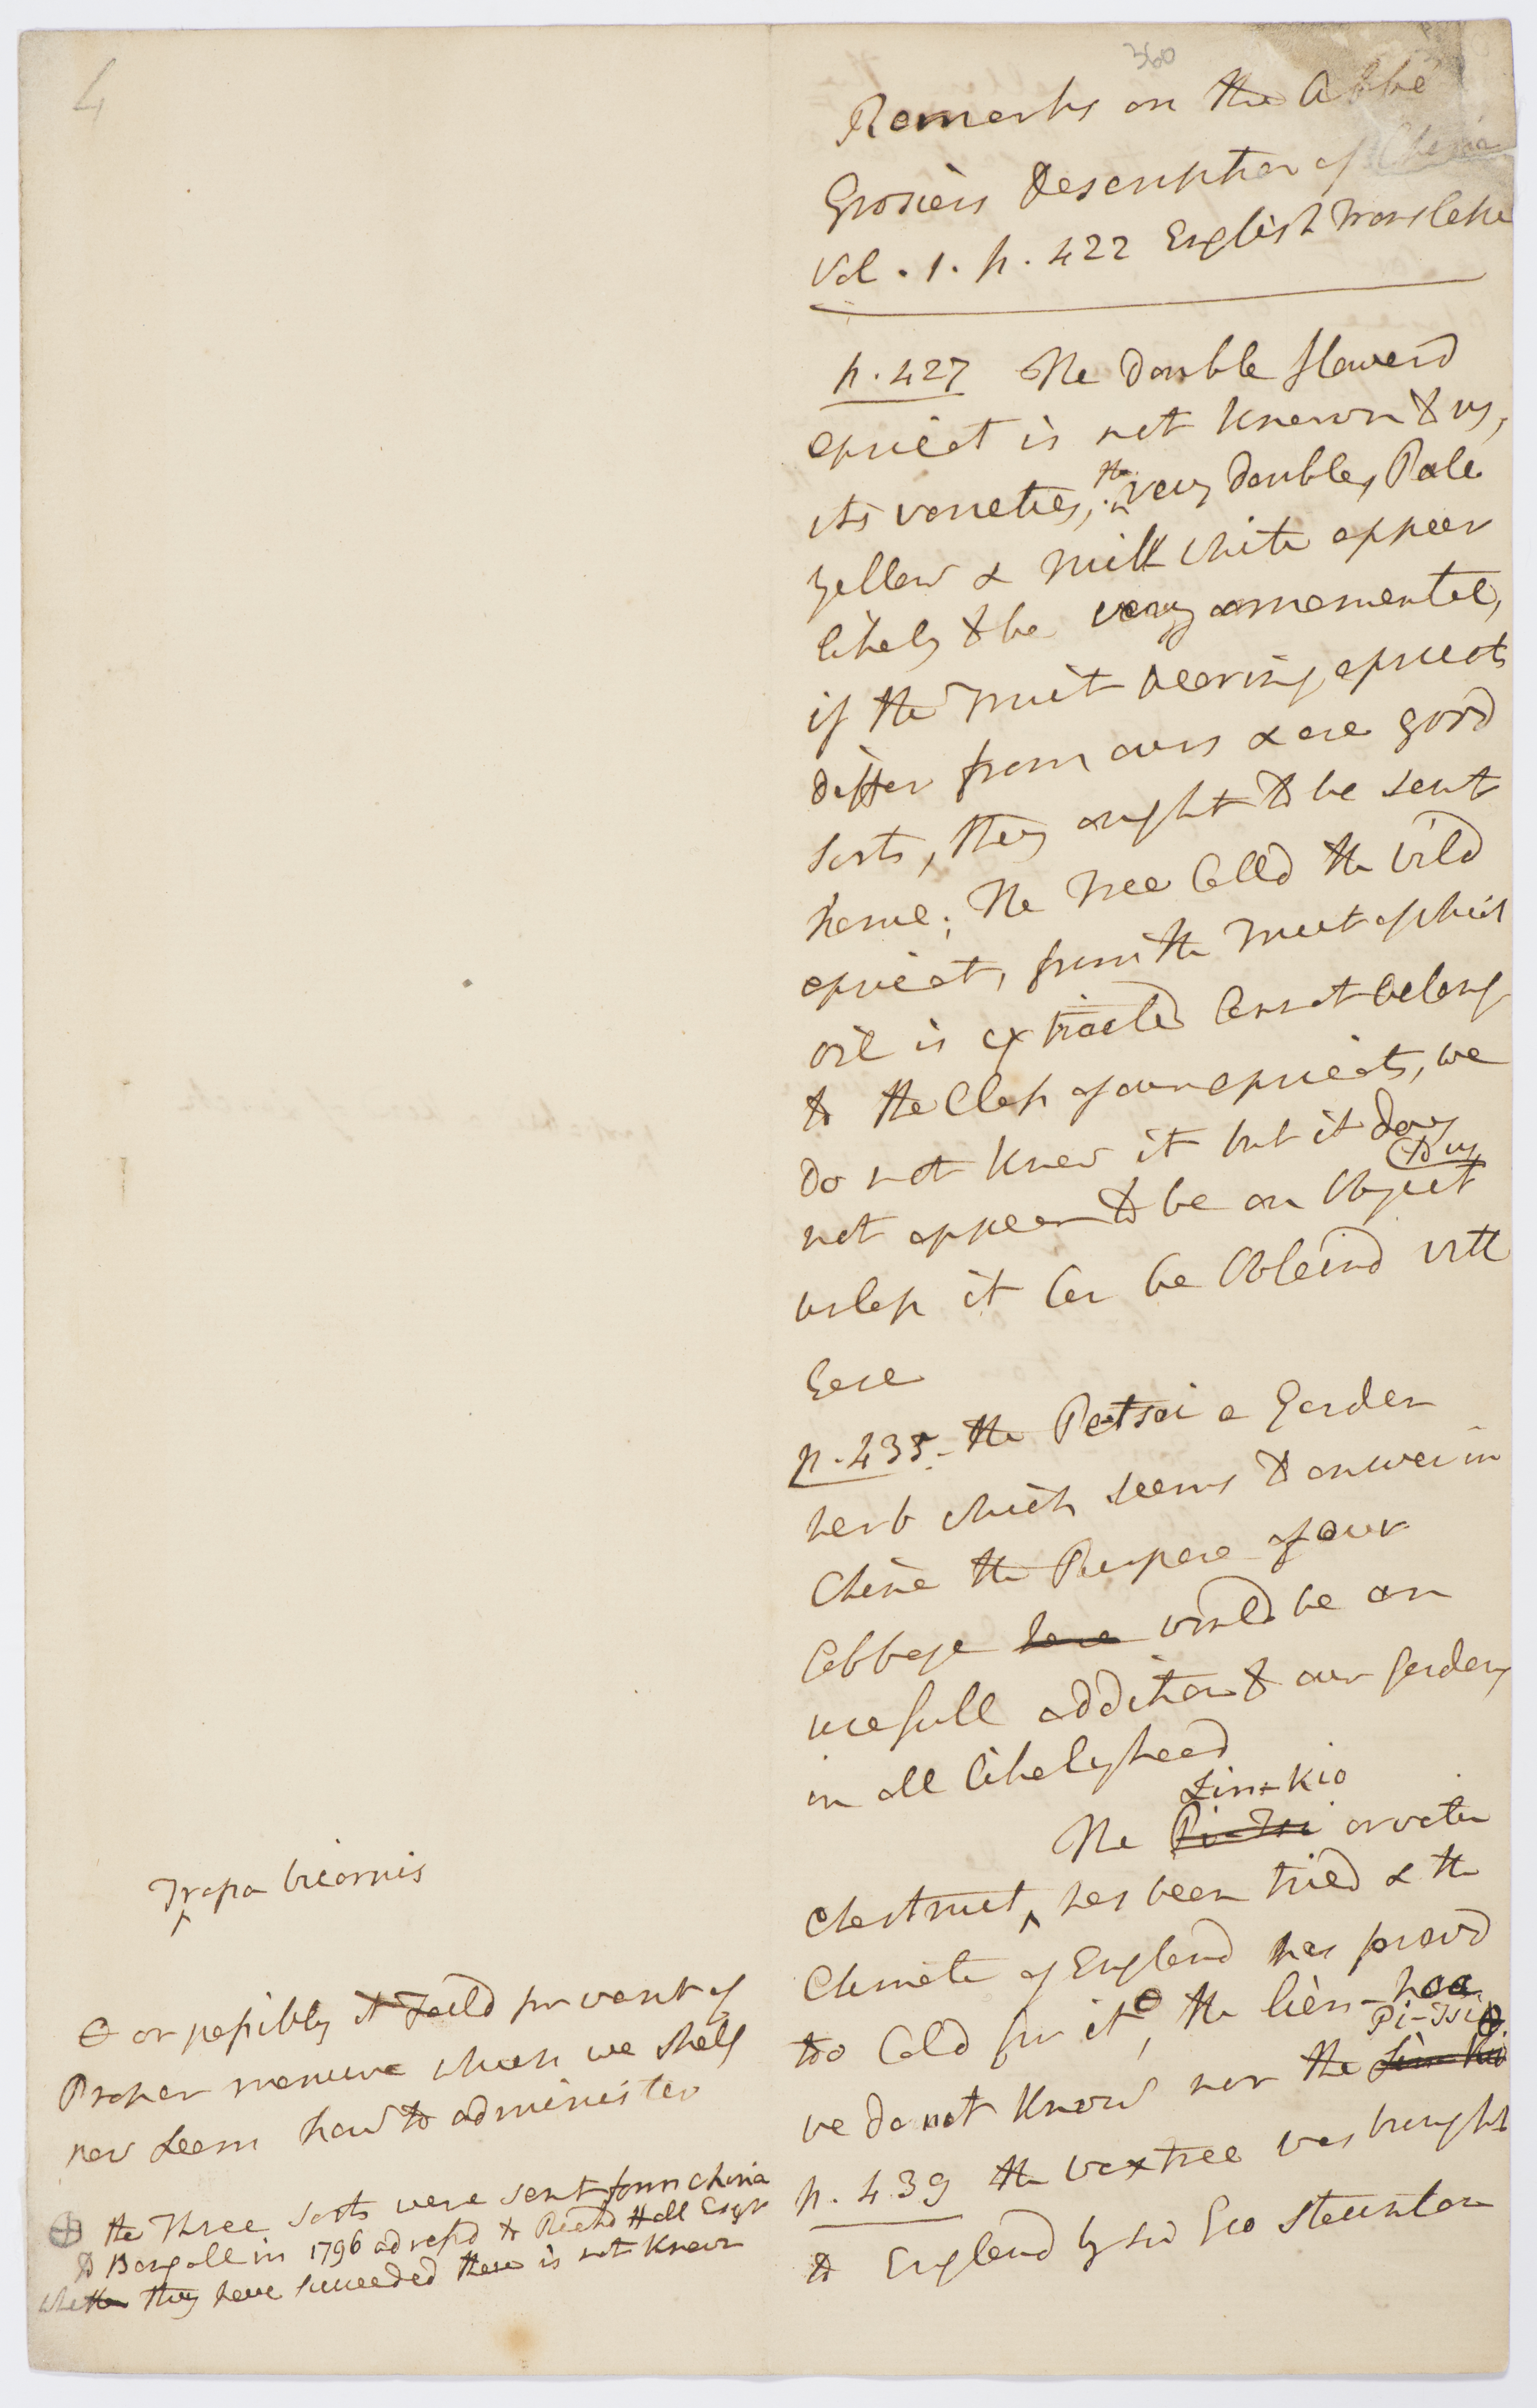 4
Trapa bicornis
⊖ or possibly it Faild for want of
Proper manure which we shall
now Learn how to administer
⊕ the Three sorts were sent from China
to Bengall in 1796 adressd to Richd Hall Esqr
whether they have succeeded there is not Known
360
Remarks on the Abbé
Grosiers Description of China
Vol. 1. p. 422 English Translatn
p. 427 The Double flowerd
apricot is not known to us,
its varieties, the very Double, Pale
yellow & milk white appear
likely to be very ornamental,
if the Fruit bearing apricots
differ from ours & are good
sorts, they ought to be sent
home; The Tree Calld the wild
apricot, from the Fruit of which
oil is extracted Cannot belong
to the Class of our apricots, we
do not Know it but it does
to us
not appear to be an Object
unless it Can be Obtaind with
Ease
p. 435. the Petsai a Garden
herb which seems to answer in
China the Purpose of our
Cabbage here would be an
usefull addition to our gardens
in all likelyhood
Lin-Kio
The Pi-Tsi or water
Chestnut ‸ has been tried & the
Climate of England has provd
too Cold for it ⊖, the lien-hoa
Pi-Tsi ⊕
we do not Know nor the Lin-Kio
p. 439 the wax tree was brought
to England by Sir Geo Staunton